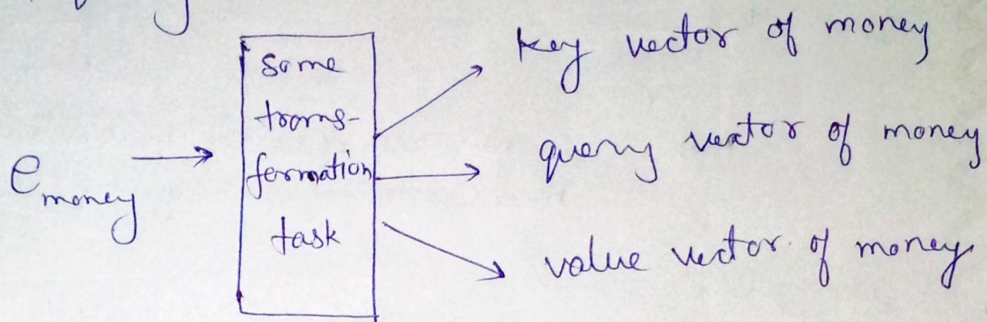 e money
some
trans-
formation
task
key vector of money
query vector of money
value vector of money